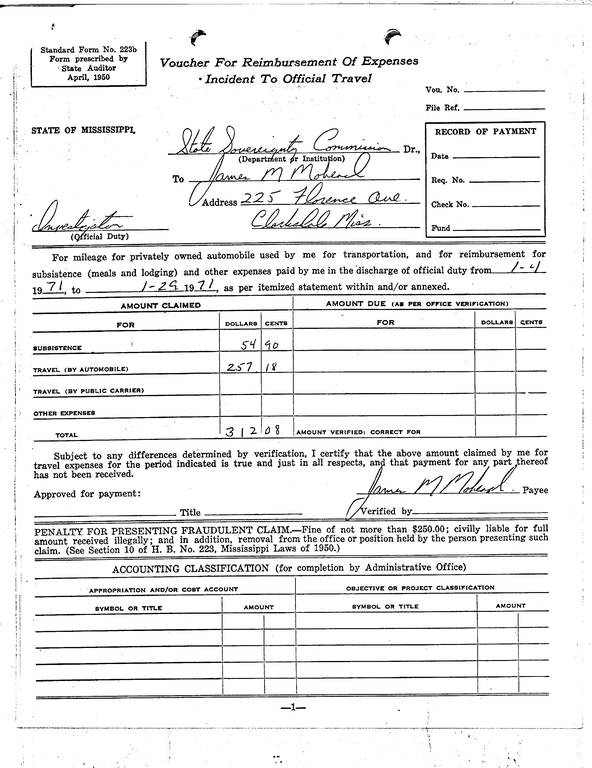 Standard Form No. 223b
Form prescribed by
State Auditor
April, 1950
Voucher For Reimbursement Of Expenses
Incident To Official Travel
Vou. No.
File Ref.
STATE OF MISSISSIPPI,
State Sovereignty Commission Dr.,
(Department or Institution)
To James M Mohead
Address 225 Florence Ave.
Clarksdale Miss.
Investigator
(Official Duty)
RECORD OF PAYMENT
Date
Req. No.
Check No.
Fund
For mileage for privately owned automobile used by me for transportation, and for reimbursement for
subsistence (meals and lodging) and other expenses paid by me in the discharge of official duty from 1-4
1971, to 1-29 1971, as per itemized statement within and/or annexed.
AMOUNT CLAIMED AMOUNT DUE (AS PER OFFICE VERIFICATION)
FOR DOLLARS CENTS FOR DOLLARS CENTS
SUBSISTENCE 54 90
TRAVEL (BY AUTOMOBILE) 257 18
TRAVEL (BY PUBLIC CARRIER)
OTHER EXPENSES
TOTAL 312 08 AMOUNT VERIFIED; CORRECT FOR
Subject to any differences determined by verification, I certify that the above amount claimed by me for
travel expenses for the period indicated is true and just in all respects, and that payment for any part thereof
has not been received.
James M Mohead Payee
Approved for payment:
Title Verified by
PENALTY FOR PRESENTING FRAUDULENT CLAIM.—Fine of not more than $250.00; civilly liable for full
amount received illegally; and in addition, removal from the office or position held by the person presenting such
claim. (See Section 10 of H. B. No. 223, Mississippi Laws of 1950.)
ACCOUNTING CLASSIFICATION (for completion by Administrative Office)
APPROPRIATION AND/OR COST ACCOUNT OBJECTIVE OR PROJECT CLASSIFICATION
SYMBOL OR TITLE AMOUNT SYMBOL OR TITLE AMOUNT
—1—